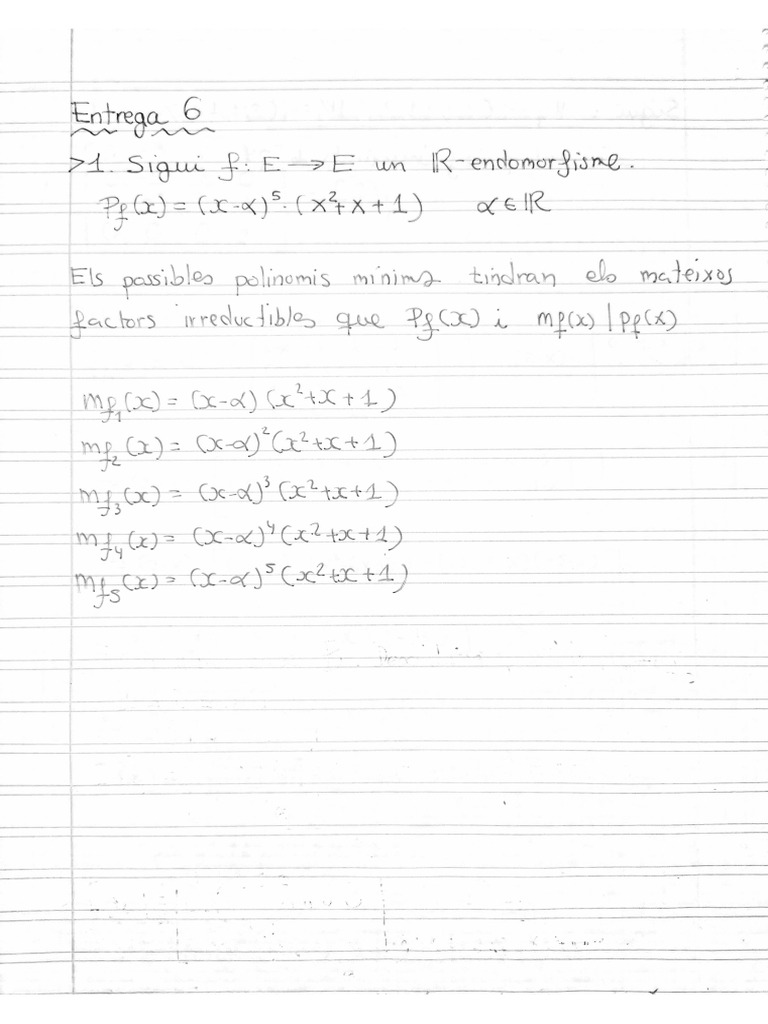 Entrega 6
>1. Sigui f: E → E un ℝ-endomorfisme.
Pf(x) = (x-α)⁵·(x²+x+1) α∈ℝ
Els possibles polinomis mínims tindran els mateixos
factors irreductibles que Pf(x) i mf(x) | Pf(x)
mf₁(x) = (x-α)(x²+x+1)
mf₂(x) = (x-α)²(x²+x+1)
mf₃(x) = (x-α)³(x²+x+1)
mf₄(x) = (x-α)⁴(x²+x+1)
mf₅(x) = (x-α)⁵(x²+x+1)